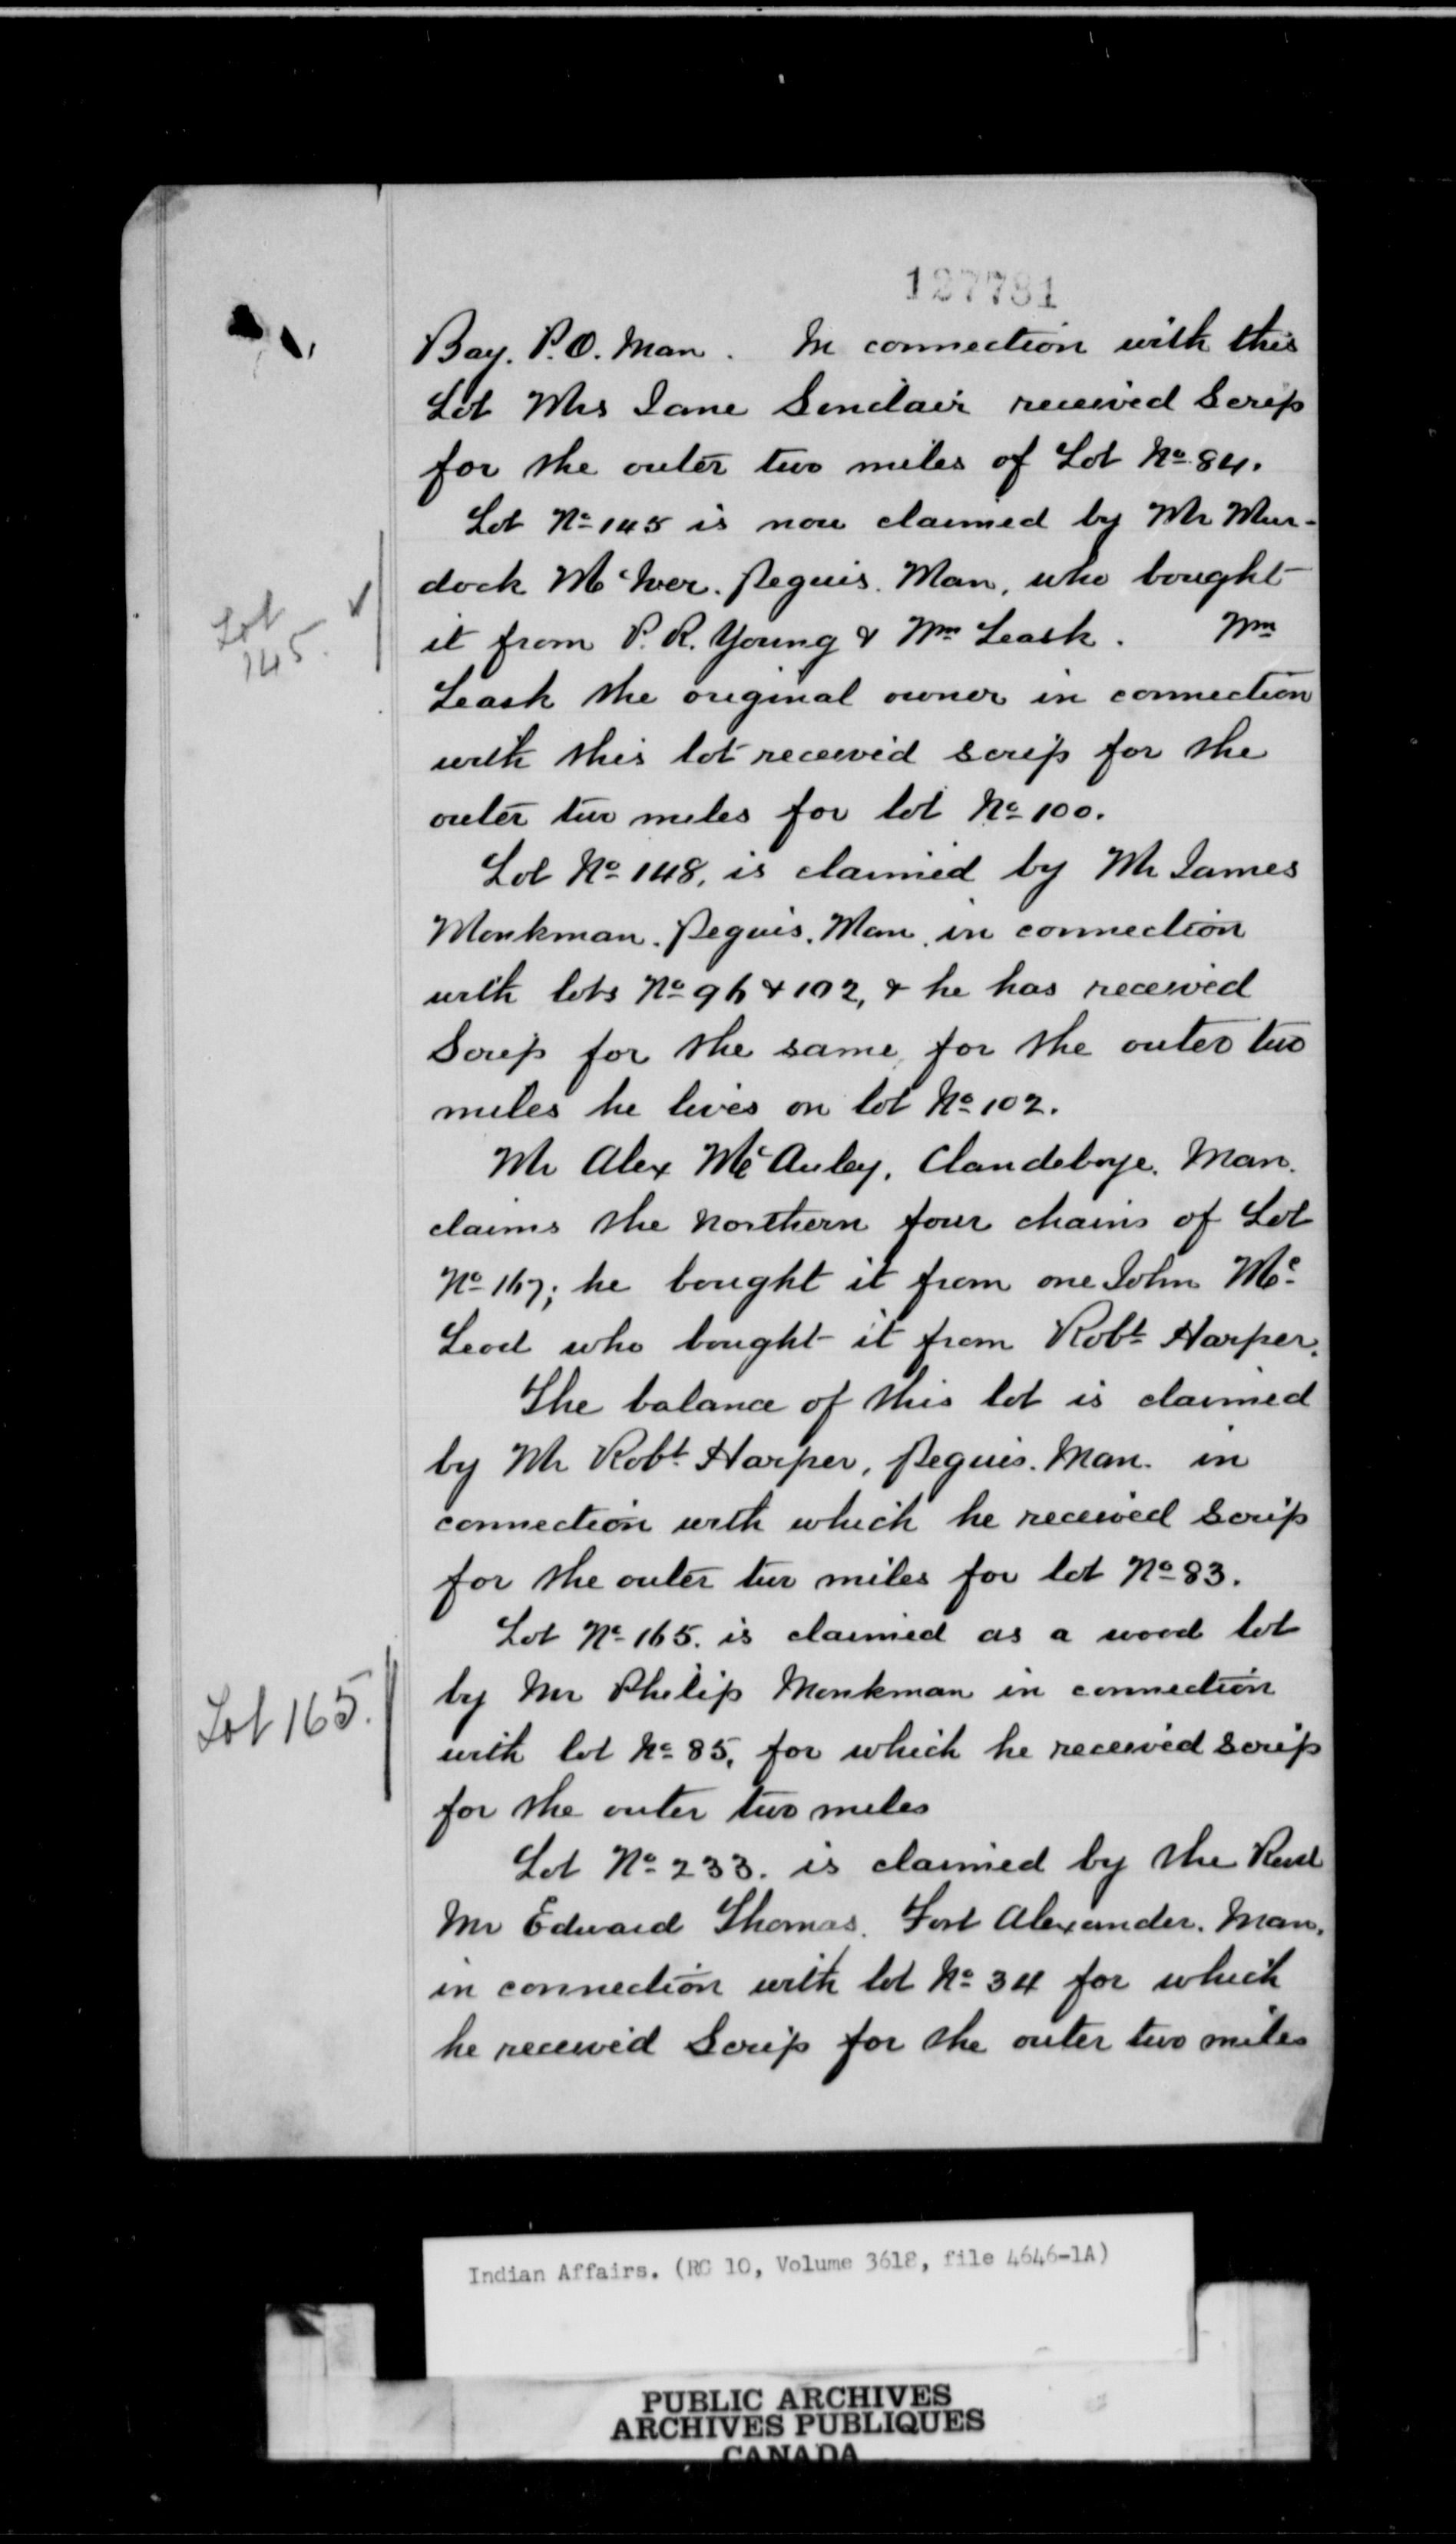 127781
Bay. P.O. Man. In connection with this
Lot Mrs Jane Sinclair received Scrip
for the outer two miles of Lot No 84.
Lot No 145 is now claimed by Mr Mur-
dock McIver. Peguis. Man, who bought
it from P. R. Young & Wm Leask. Wm
Lot 145.
Leask the original owner in connection
with this lot received scrip for the
outer two miles for lot No 100.
Lot No 148, is claimed by Mr James
Monkman. Peguis. Man. in connection
with lots No 96 & 102, & he has received
Scrip for the same, for the outer two
miles he lives on lot No 102.
Mr Alex McAuley, Clandeboye. Man.
claims the Northern four chains of Lot
No 167; he bought it from one John Mc-
Leod who bought it from Robt Harper.
The balance of this lot is claimed
by Mr Robt Harper, Peguis. Man. in
connection with which he received Scrip
for the outer two miles for lot No 83.
Lot No 165. is claimed as a wood lot
by Mr Philip Monkman in connection
Lot 165.
with lot No 85, for which he received scrip
for the outer two miles
Lot No 233. is claimed by the Revd
Mr Edward Thomas. Fort Alexander. Man.
in connection with lot No 34 for which
he received Scrip for the outer two miles
Indian Affairs. (RG 10, Volume 3618, file 4646-1A)
PUBLIC ARCHIVES
ARCHIVES PUBLIQUES
CANADA